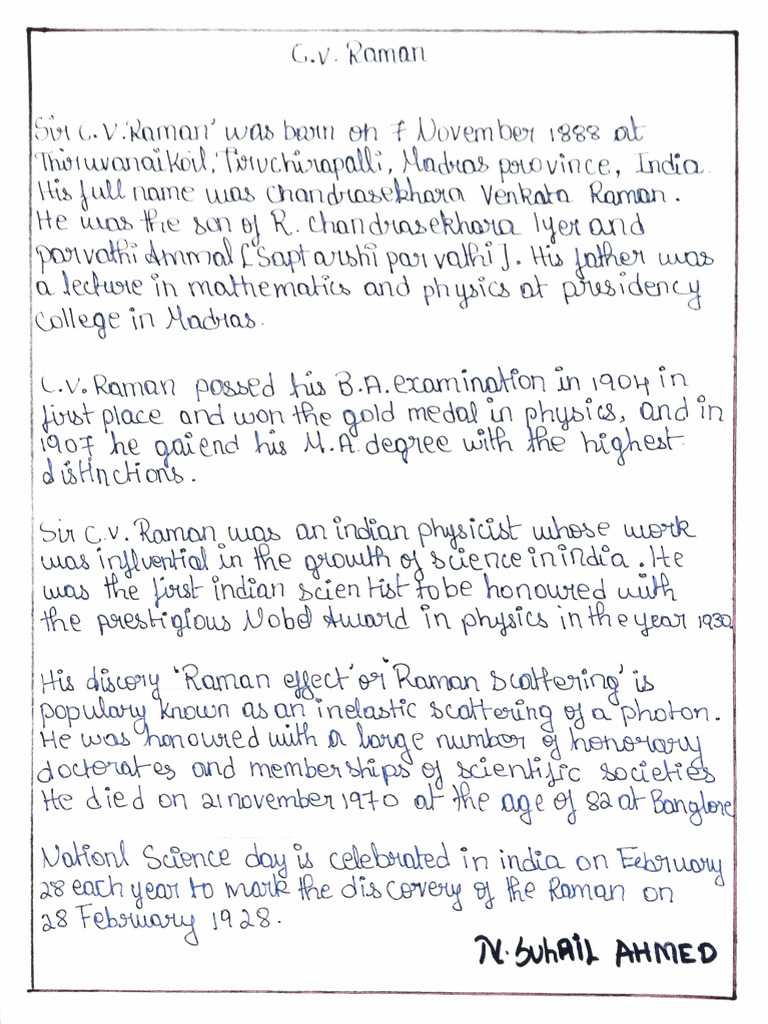 C.V. Raman
Sir C.V.'Raman' was barn on 7 November 1888 at
Thiruvanaikoil, Tiruchirapalli, Madras province, India.
His full name was chandrasekhara Venkata Raman.
He was the son of R. Chandrasekhara Iyer and
parvathi Ammal [Saptarshi parvathi]. His father was
a lecture in mathematics and physics at presidency
college in Madras.
C.V. Raman possed his B.A. examination in 1904 in
first place and won the gold medal in physics, and in
1907 he gaiend his M.A. degree with the highest
distinctions.
Sir C.V. Raman was an indian physicist whose work
was influential in the growth of science in india. He
was the first indian scientist to be honoured with
the prestigious Nobel Award in physics in the year 1930.
His discory 'Raman effect' or 'Raman Scattering' is
populary known as an inelastic scattering of a photon.
He was honoured with a large number of honorary
doctorates and memberships of scientific societies
He died on 21 november 1970 at the age of 82 at Banglore
Nationl Science day is celebrated in india on February
28 each year to mark the discovery of the Raman on
28 February 1928.
N. SUHAIL AHMED